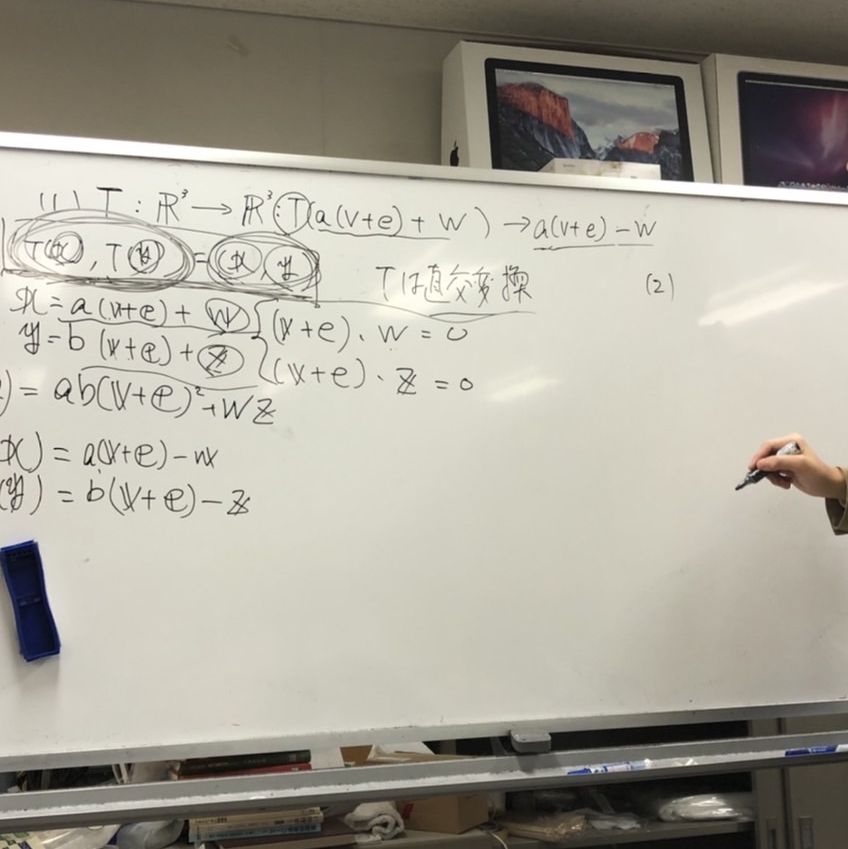 (1) T : ℝ³ → ℝ³ : T(a(v+e) + w) → a(v+e) − w
(T(x), T(y)) = (x, y)
Tは直交変換
(2)
x = a(v+e) + w { (v+e) · w = 0
y = b(v+e) + z { (v+e) · z = 0
) = ab(v+e)² + wz
x) = a(v+e) − w
(y) = b(v+e) − z